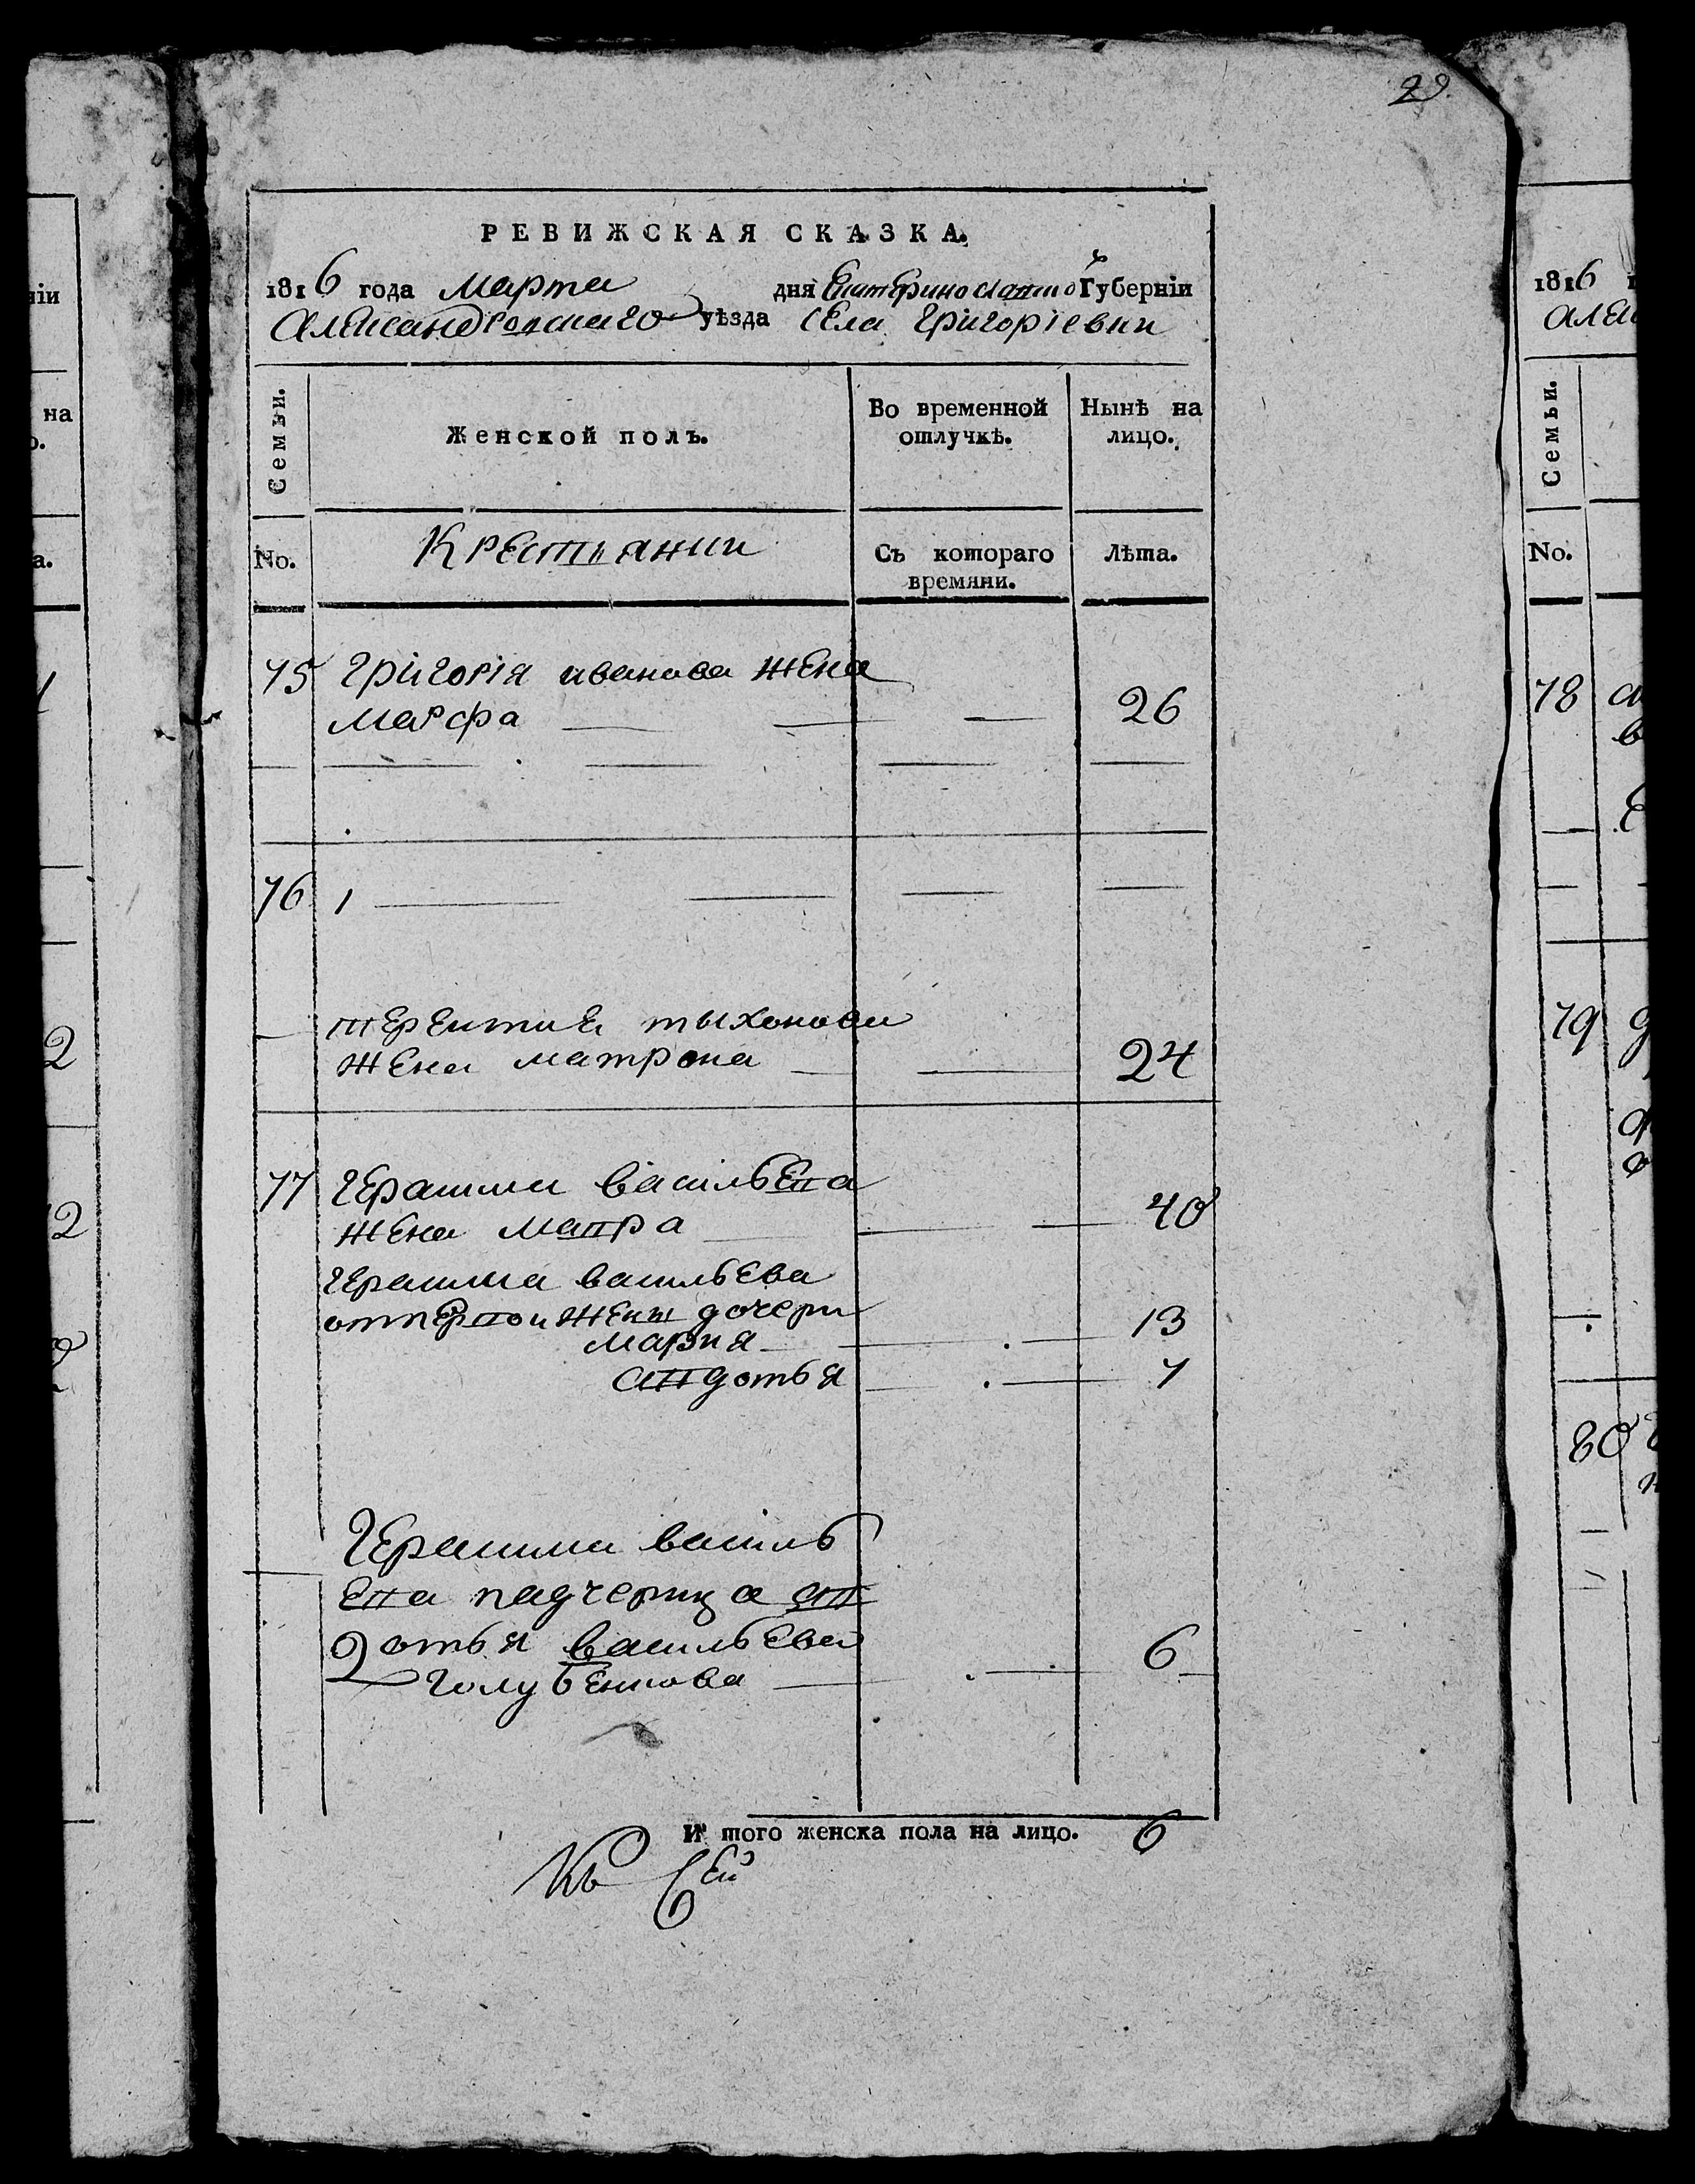 29.
РЕВИЖСКАЯ СКАЗКА.
1816 года марта дня Екатеринославской Губерніи
Александровскаго уѣзда села Григоріевки
Семьи.
Женской полъ.
Во временной отлучкѣ.
Нынѣ на лицо.
No.
Крестьянки
Съ котораго времяни.
Лѣта.
75 Григорія иванова жена
марфа 26
76 1
терентия тыхонова
жена матрона 24
77 Герасима васильева
жена мавра 40
Герасима васильева
отпервои жены дочери 13
мария
авдотья 7
Герасима василь
ева падчерица ав
дотья васильева 6
Голубенкова
И того женска пола на лицо. 6
Къ сей
ніи
на
о.
а.
1
2
12
1816
Алек
Семьи.
No.
78
в
79
80